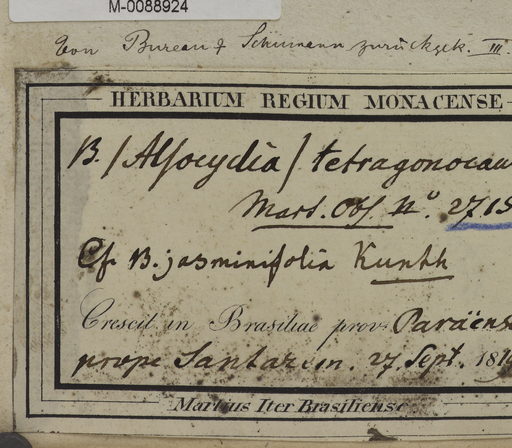 M-0088924
Von Bureau & Schumann zurückgek. III.
HERBARIUM REGIUM MONACENSE
B. / Alsocydia / tetragonocau
Mart. Obs. N°. 2715
Cf. B. jasminifolia Kunth
Crescit in Brasiliae prov. Paraëns
prope Santarem. 27. Sept. 181
Martius Iter Brasiliense